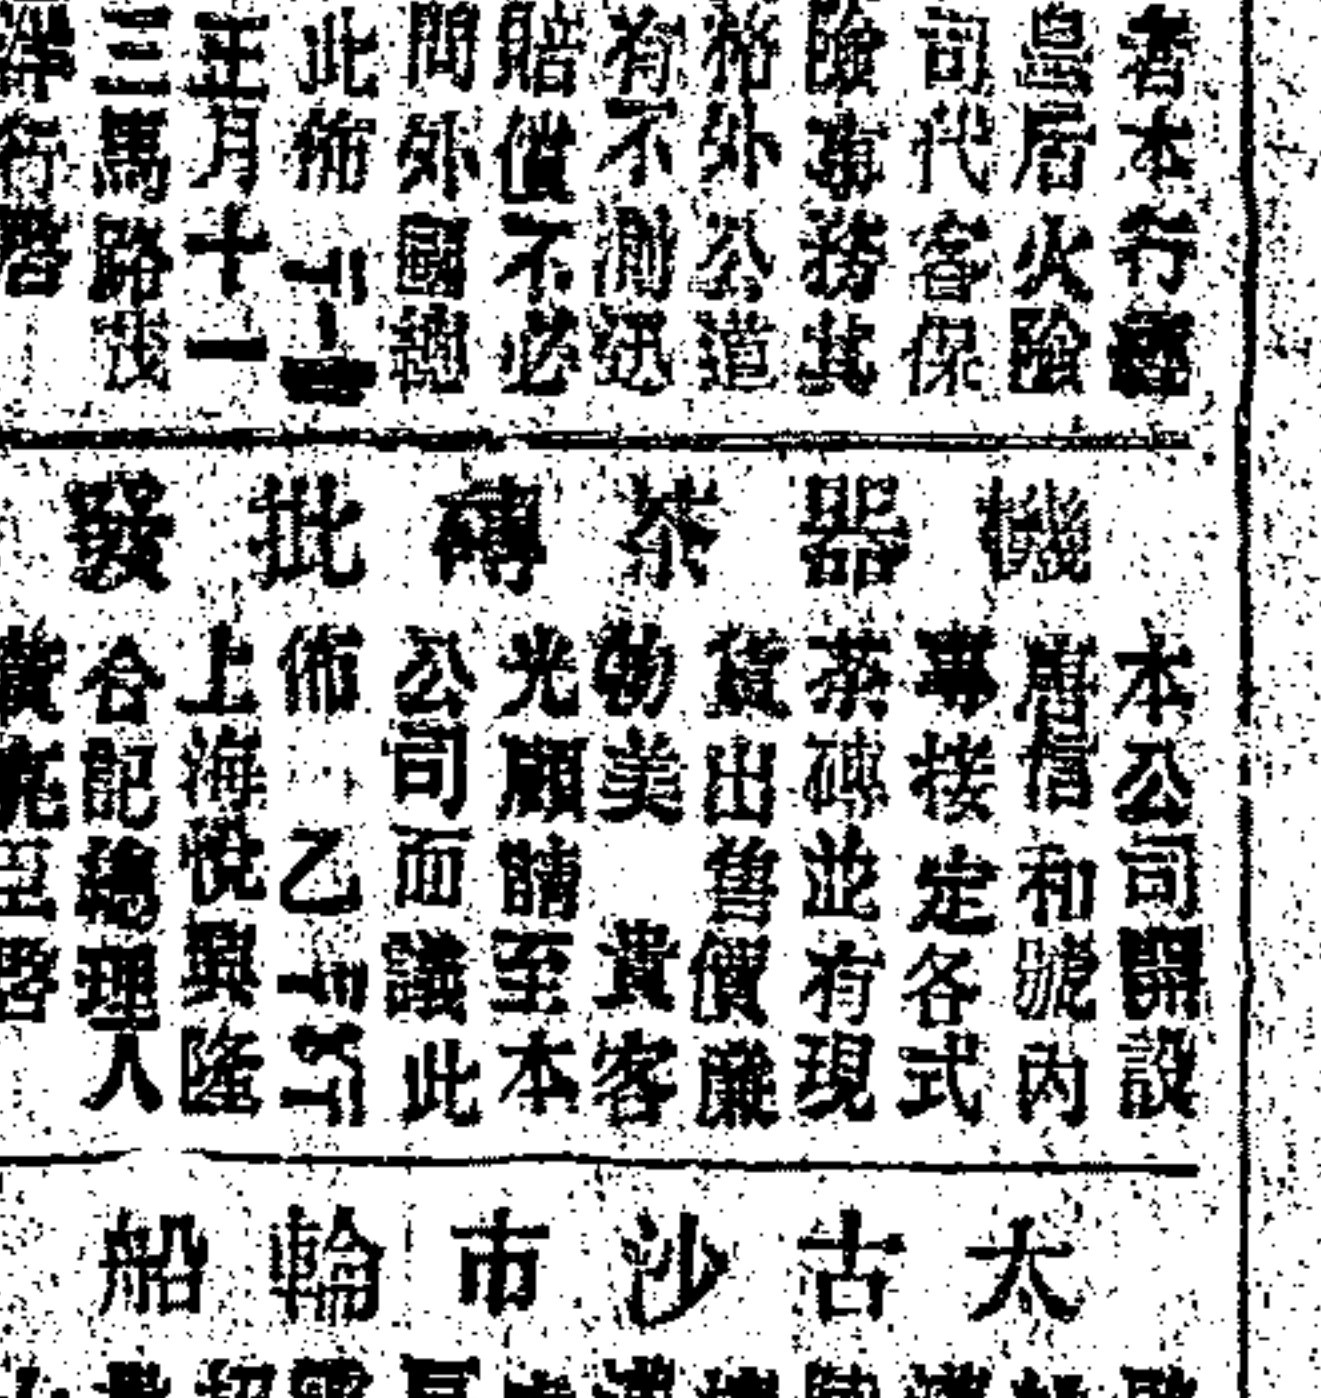 者本行經
皇后火險
司代客保
險事務其
格外公道
有不測迅
賠償不必
問外國總
此佈
正月十一
三馬路茂
洋行啓
機器茶磚批發
本公司開設
唐信和號內
專接定各式
茶磚並有現
貨出售價廉
物美 貴客
光顧請至本
公司面議此
佈 乙
上海悅興隆
合記總理人
黃兆臣啓
太古沙市輪船